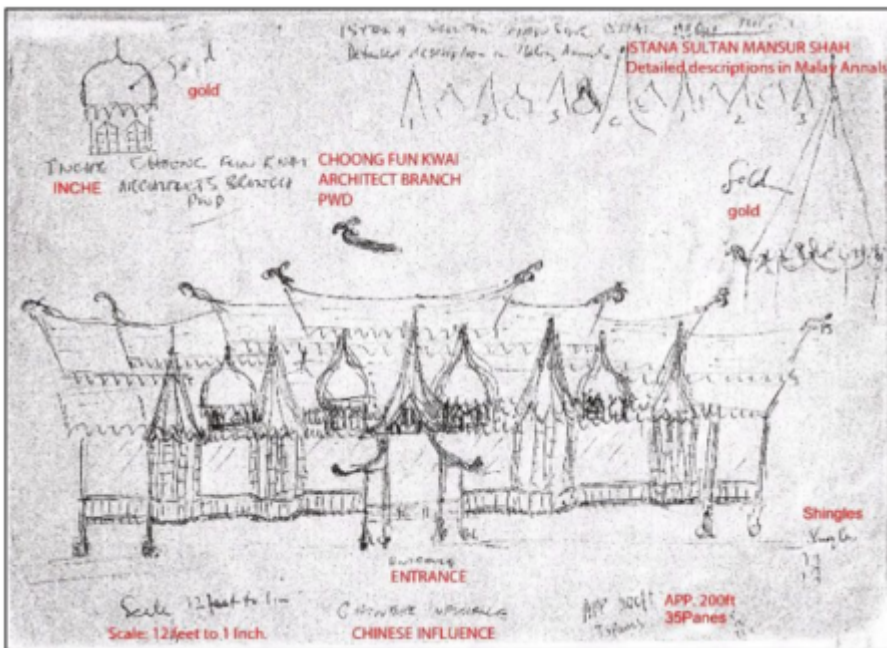 ISTANA SULTAN MANSUR SHAH
Detailed description in Malay Annals
ISTANA SULTAN MANSUR SHAH
Detailed descriptions in Malay Annals
gold
gold
1 2 3 1 2 3
INCHE CHOONG FUN KWAI
ARCHITECTS BRANCH
PWD
INCHE
CHOONG FUN KWAI
ARCHITECT BRANCH
PWD
Gold
gold
Shingles
ENTRANCE
ENTRANCE
Scale 12 feet to 1 in
Scale: 12 feet to 1 Inch.
CHINESE INFLUENCE
CHINESE INFLUENCE
APP 200ft
APP. 200ft
35Panes